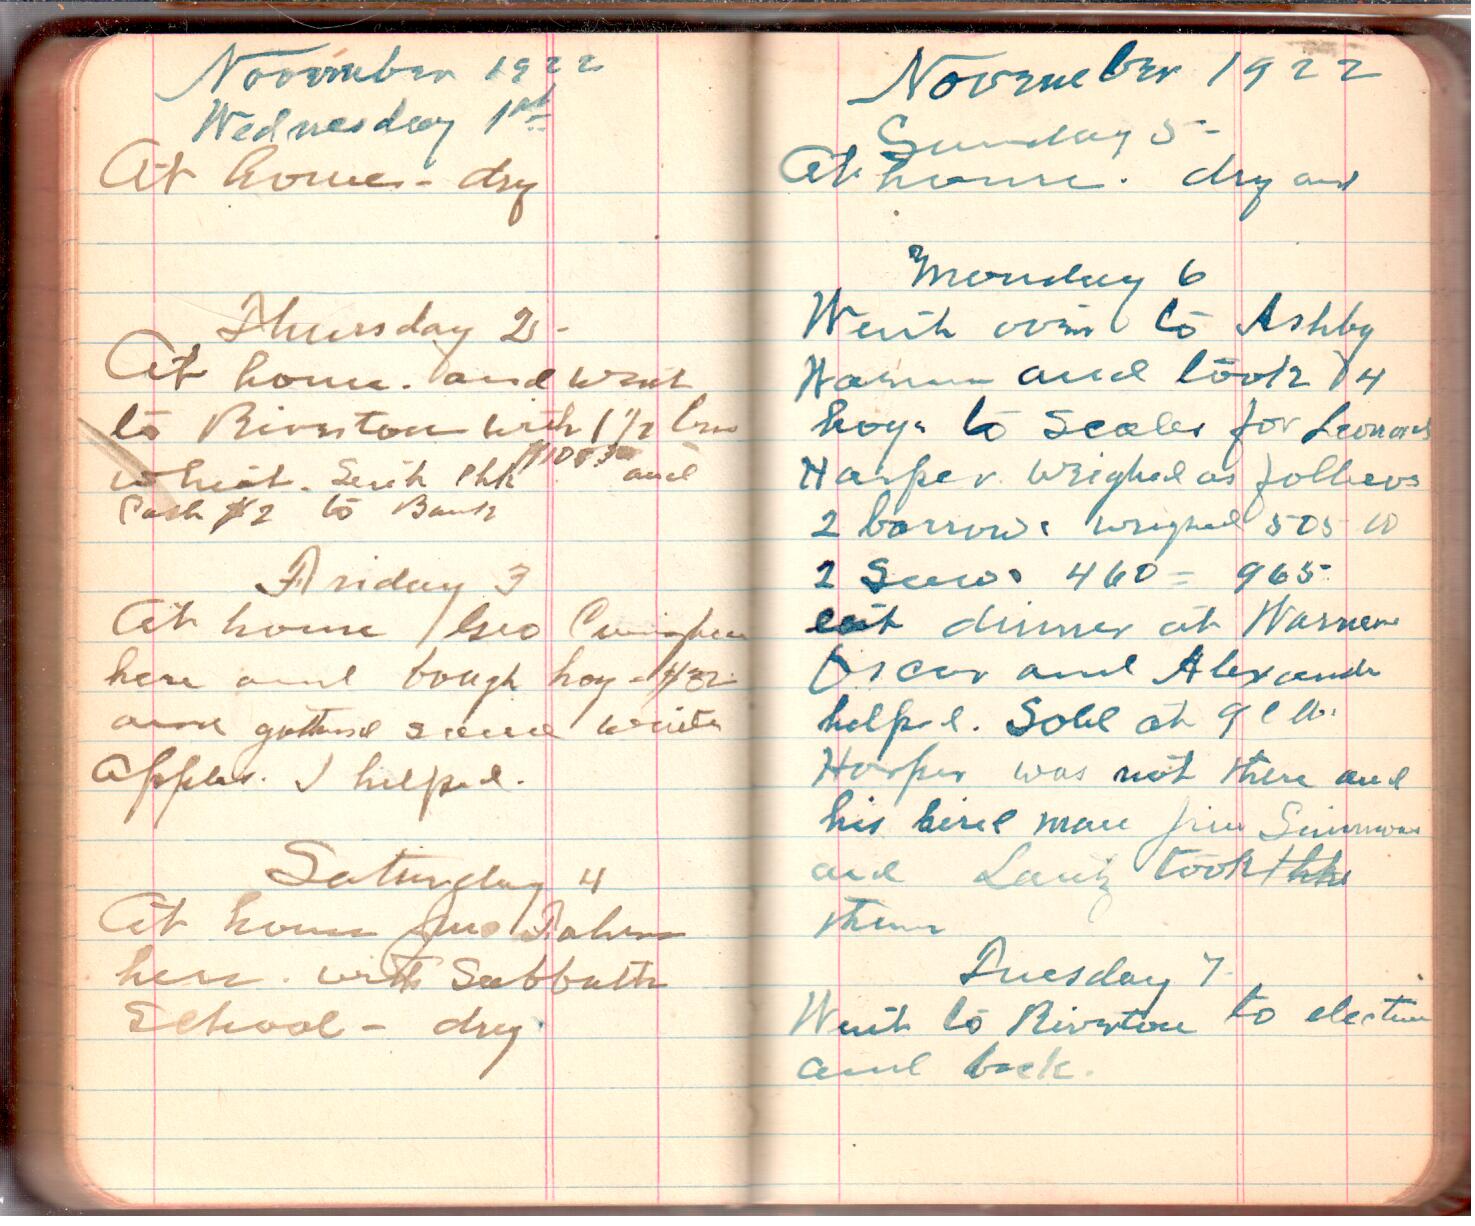 November 1922
Wednesday 1st
At home - dry
Thursday 2 -
At home. and went
to Riverton with 1 1/2 bus
wheat. Sent Chk and
Cash $2 to Bank
Friday 3
At home Geo
here and bough hog -
and gathered some
Apples. I helped.
Saturday 4
At home Jno
here. with Sabbath
School - dry
November 1922
Sunday 5 -
At home. dry and
Monday 6
Went over to Ashby
Warner and took 4
hogs to Scales for Leonard
Harper. weighed as follows
2 barrows weighed 505
2 Sows 460 = 965
eat dinner at Warners
Oscar and Alexander
helped. Sold at 9¢ lb.
Harper was not there and
his hired man Jim Simmons
and Lantz took
them
Tuesday 7
Went to Riverton to election
and back.